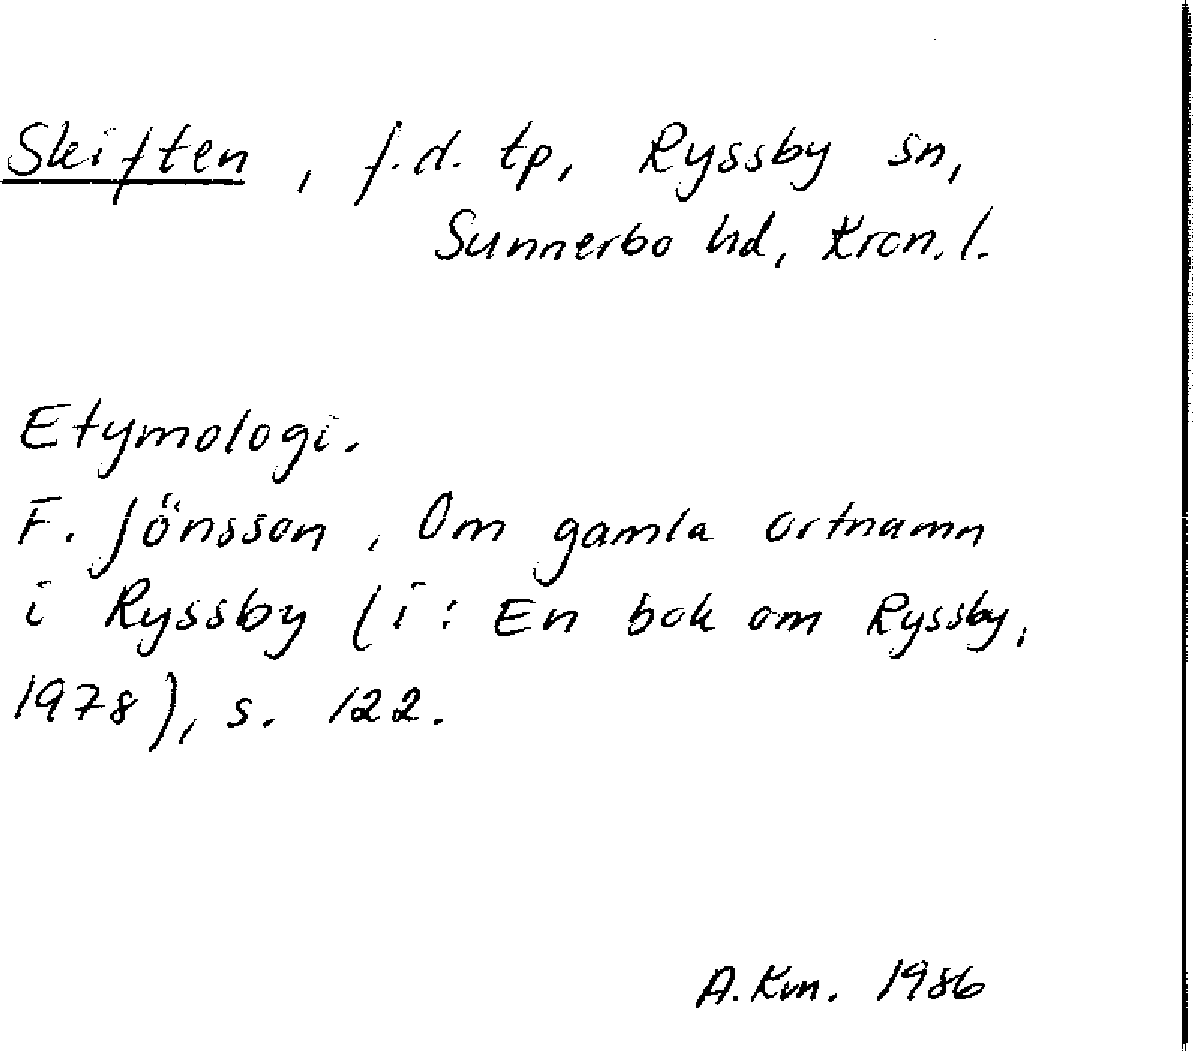 Skiften, f.d. tp, Ryssby sn,
Sunnerbo hd, Kron. l.
Etymologi.
F. Jönsson, Om gamla ortnamn
i Ryssby (i: En bok om Ryssby,
1978), s. 122.
A.Km. 1986